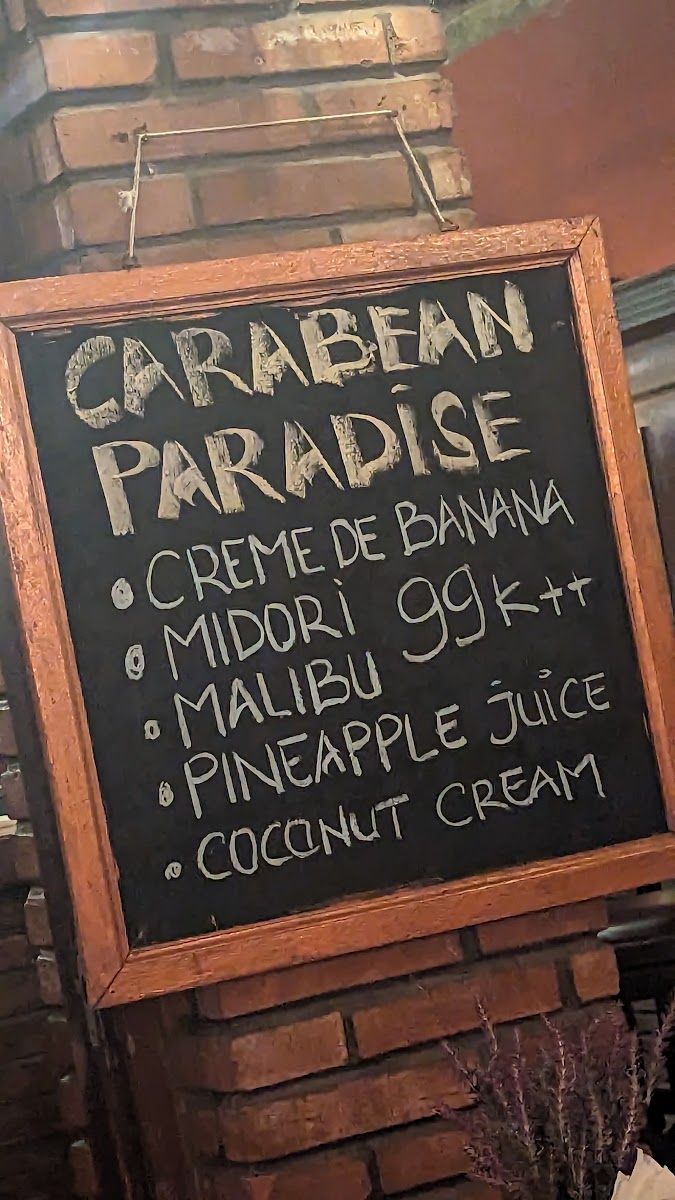 CARABEAN
PARADİSE
• CREME DE BANANA
• MIDORİ 99K++
• MALIBU
• PINEAPPLE juice
• COCONUT CREAM